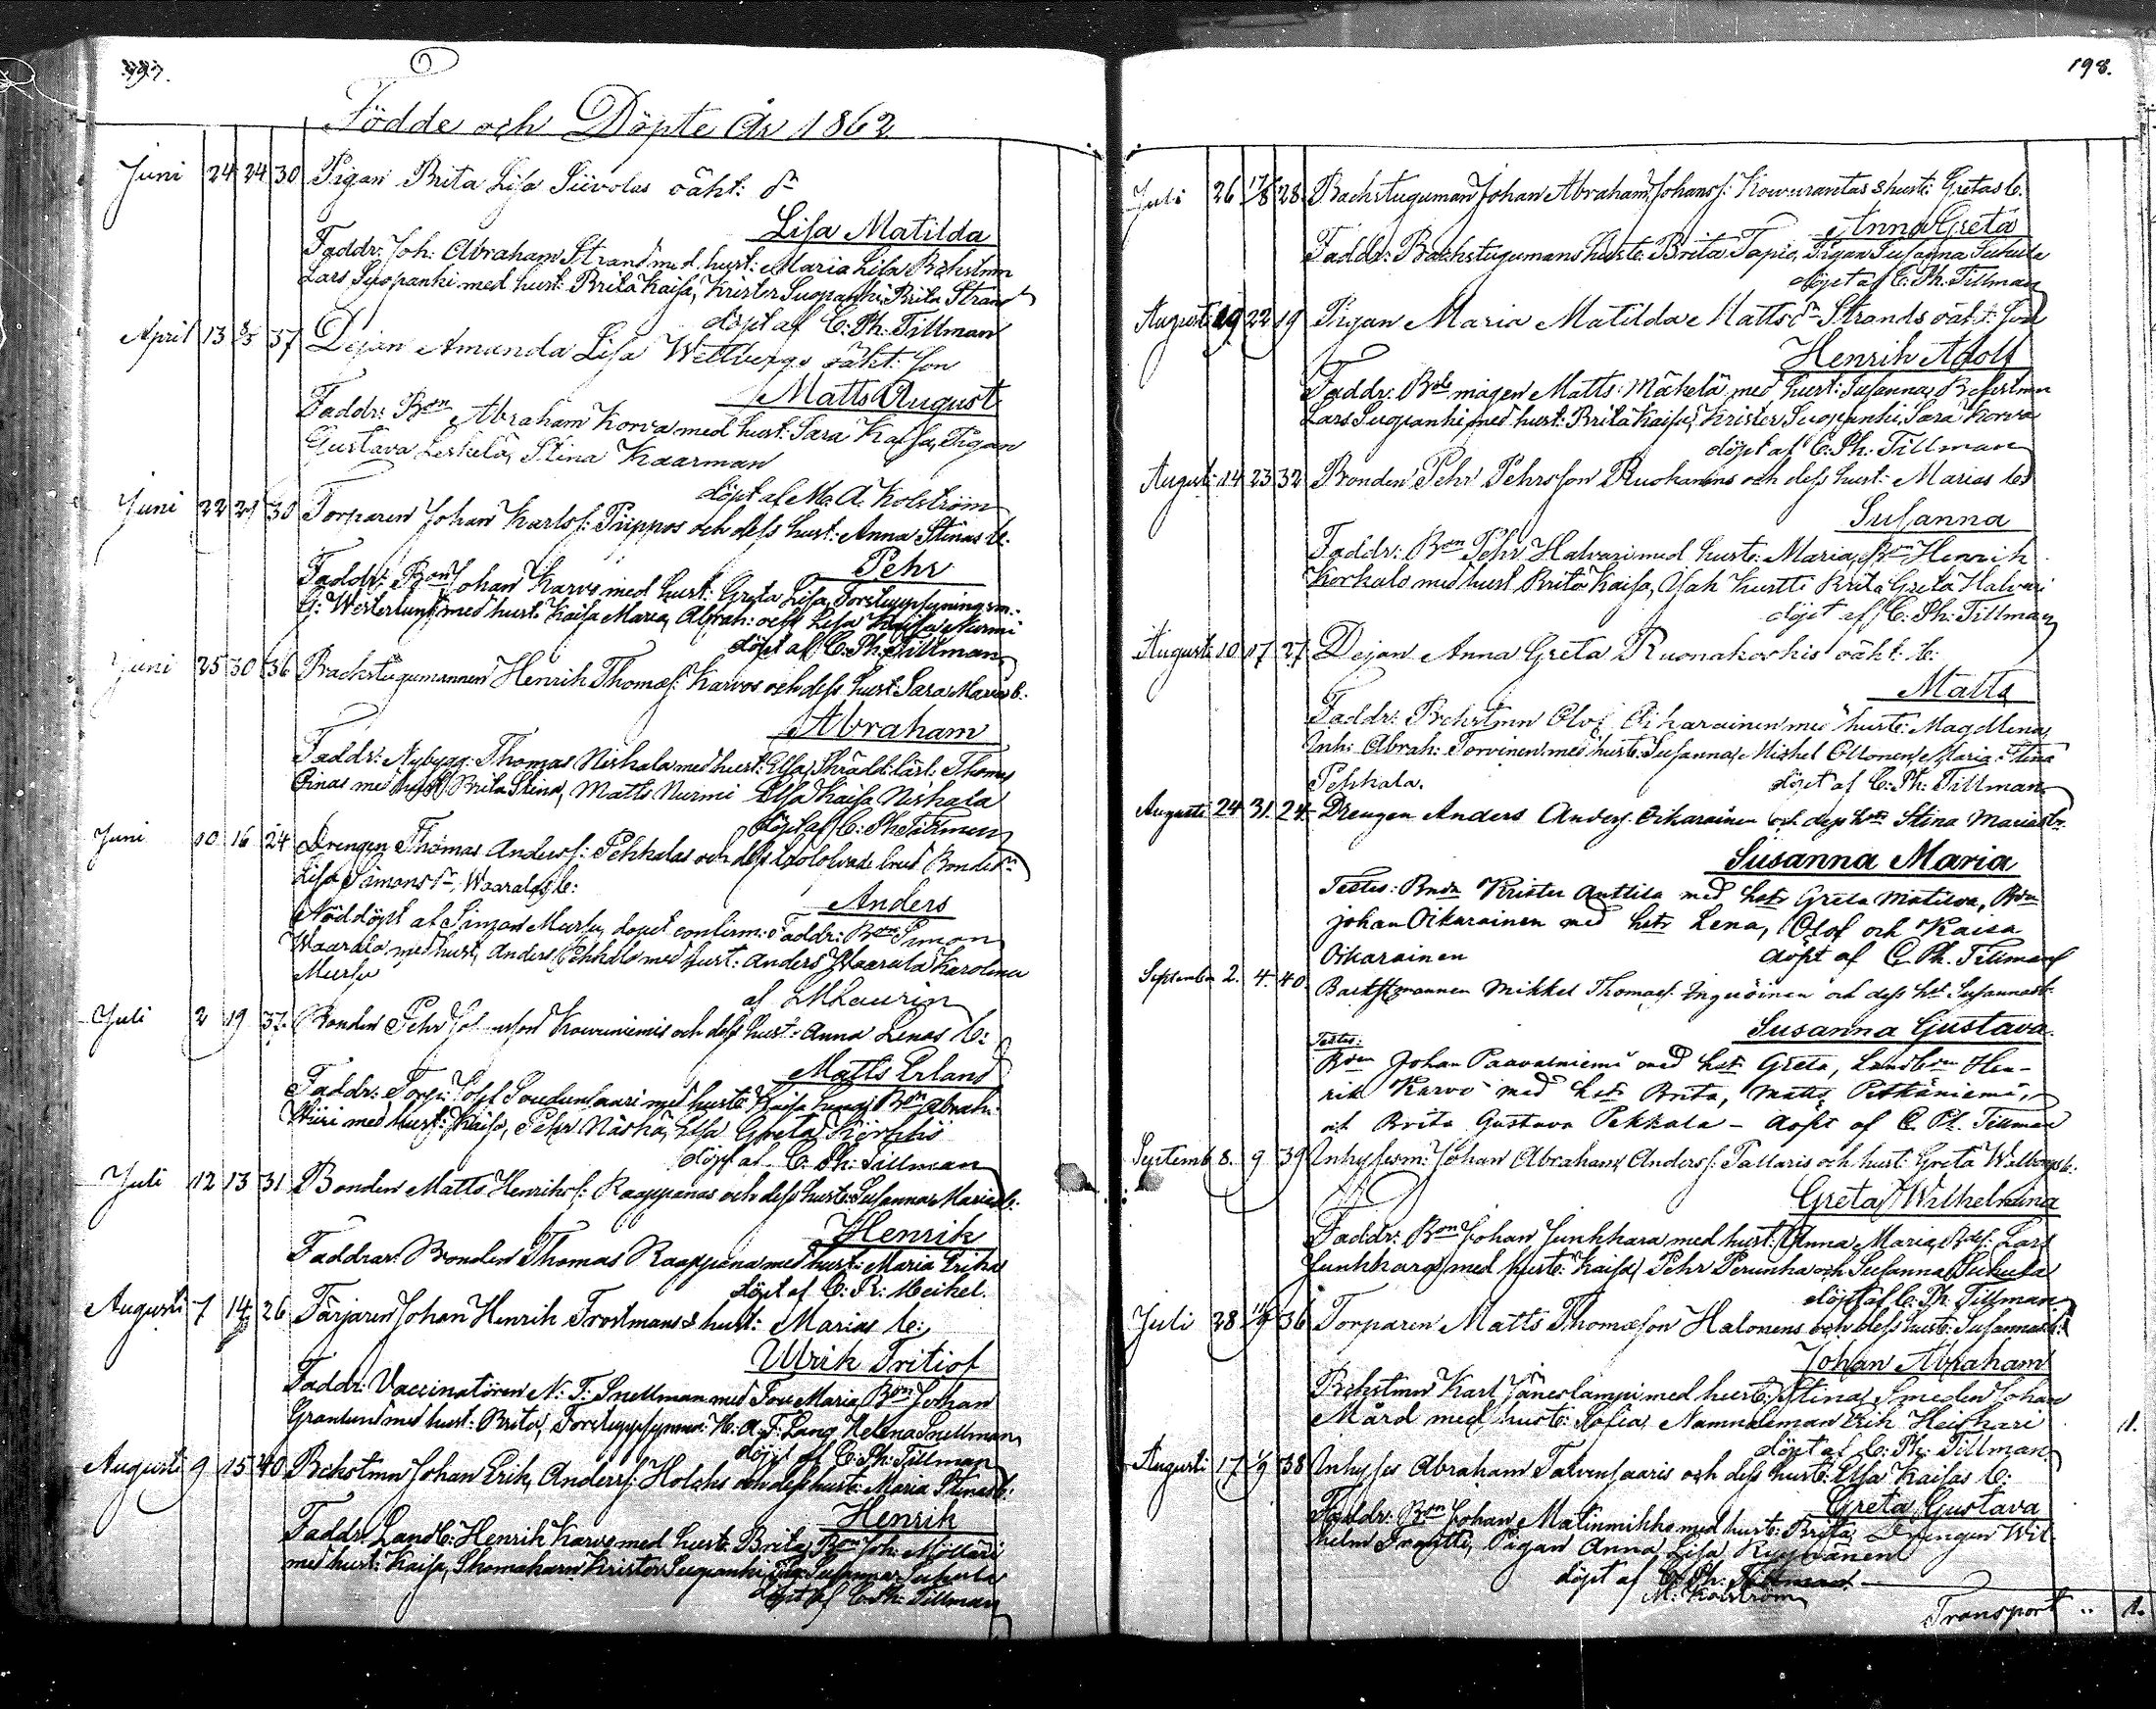 197.
Födde och Döpte År 1862
Juni 24 24 30 Pigan Brita Lisa Siivolas oäkt: dr
Lisa Matilda
Faddr: Joh: Abraham Strand med hust: Maria Lisa Bökstmn
Lars Suopanki med hust: Brita Kaisa, Krister Suopanki, Brita Strand
döpt af C: Ph: Tillman
April 13 3/5 37 Dejan Amanda Lisa Wettbergs oäkt: Son
Matts August
Faddr: Bon Abraham Korva med hust: Sara Kaisa, Pigan
Gustava Leskelä, Stina Kaarman
döpt af M: A: Kolström
Juni 22 24 30 Torparen Johan Karlss: Piippos och dess hust: Anna Stinas b:
Pehr
Faddr: Bon Johan Karvo med hust: Greta Lisa, Forstuppsynings m.
G: Westerlund med hust: Kaisa Maria, Abrah: och Lisa Kaisa Nurmi
döpt af C: Ph: Tillman
Juni 25 30 36 Backstugumannen Henrik Thomæs: Karvos och dess hust: Sara Marias b:
Abraham
Faddr: Nybygg: Thomas Niskala med hust: Elsa, Skrädd: lärl: Thomas
med hust: Brita Stina, Matts Nurmi Elsa Kaisa Niskala
döpt af C: Ph: Tillman
Juni 10 16 24 Drengen Thomas Anderss: Pekkalas och dess trolofvade brud Bondedr
Lisa Simonsdr Waaralas b:
Anders
Nöddöpt af Simon Mursu, dopet confirm: Faddr: Bon Simon
Waarala med hust, Anders Pekkala med hust: Anders Waarala Karolina
Mursu
af LMLaurin
Juli 2 19 37. Bonden Pehr Johansson Kouriniemis och dess hust: Anna Lenas b:
Matts Erland
Faddr: Torp: Olof Soudunsaari med hust: Kaisa Lena, Bon Abrah:
Wiiri med hust: Kaisa, Pehr Näskä, Elsa Greta Kerkkö
döpt af C: Ph: Tillman
Juli 12 13 31 Bonden Matts Henrikss: Raappanas och dess hust: Susanna Marias b:
Henrik
Faddrar: Bonden Thomas Raappana med hust: Maria Erika
döpt af C: R: Heikel.
Augusti 7 14 26 Färjaren Johan Henrik Trostmans & hust: Marias b:
Ulrik Fritiof
Faddr: Vaccinatören N: F: Snellman med Fru Maria, Bon Johan
Granlund med hust: Brita, Forstuppsynm: K: A: F: Lang Helena Snellman
döpt af C: Ph: Tillman
Augusti 9 15 40 Bckstmn Johan Erik Anderss: Holcks och dess hust: Maria Stinas b:
Henrik
Faddr: Landb: Henrik Karvo med hust: Brita, Bon Joh: Möllari
med hust: Kaisa, Skomakaren Krister Suopanki, Pig: Susanna Sukula
döpt af C: Ph: Tillman
198.
Juli 26 17/8 28. Backstuguman Johan Abraham Johanss: Kouvrantas & hust: Gretas b.
Anna Greta
Faddr: Backstugumans hust: Brita Tapio, Pigan Susanna Sukula
döpt af C: Ph. Tillman
Augusti 19 22 19 Pigan Maria Matilda Mattsdr Strands oäkt: Son
Henrik Adolf
Faddr: Bde mågen Matts: Mäkelä med hust: Susanna, Bckstmn
Lars Suopanki med hust: Brita Kaisa, Krister Suopanki, Sara Korva
döpt af C: Ph: Tillman
Augusti 14 23 32 Bonden Pehr Pehrsson Ruokanens och dess hust: Marias b:
Susanna
Faddr: Bon Pehr Halvari med hust: Maria, Bon Henrik
Korkalo med hust Brita Kaisa, Isak Kurtti Brita Greta Halvari
döpt af C: Ph: Tillman
Augusti 10 17 27 Dejan Anna Greta Ruonakoskis oäkt: b:
Matts
Faddr: Bckstmn Olof Oikarainen med hust: Magdlena,
Inh: Abrah: Torvinen med hust: Susanna, Mickel Ollonen, Maria Stina
Pekkala.
döpt af C: Ph: Tillman
Augusti 24 31. 24. Drengen Anders Anders: Oikarainen och dess hru Stina Marias br.
Susanna Maria
Testes: Bndn Krister Anttila med hstr Greta Matilda, Bdn
johan Oikarainen med hstr Lena, Olof och Kaisa
Oikarainen
döpt af C. Ph. Tillman
September 2. 4. 40. Backstmannen Mikkel Thomæs: Inguöinen och dess hst Susannas b:
Susanna Gustava
Testes:
Bdn Johan Paavalniemi med hst Greta, Landbdn Hen-
rik Karvo med hst Brita, Matts Pitkäniemi,
och Brita Gustava Pekkala - döpt af C. Ph. Tillman
Septemb 8. 9 39 Inhysesm: Johan Abraham Anderss: Tallaris och hust: Greta Walborgs b:
Greta Wilhelmina
Faddr: Bon Johan Junkkara med hust: Anna Maria, Bds: Lars
Junkkara med hust: Kaisa, Pehr Perunka och Susanna Sukula
döpt af C: Ph: Tillman.
Juli 28 11/9 36 Torparen Matts Thomæson Halonens och dess hust: Susannas b:
Johan Abraham
Bckstmn Karl Jäneslampi med hust: Stina, Smeden Johan
Mård med hust: Sofia, Nämndeman Erik Heiskari
döpt af C: Ph: Tillman.
1.
Augusti 17 1/9 38 Inhyses Abraham Talvensaaris och dess hust: Elsa Kaisas b:
Greta Gustava
Faddr: Bon Johan Matinmikko med hust: Brita, Drengen Wil-
helm Pigan Anna Lisa
döpt af C: Ph: Tillman
M: Kolström
Transport .. 1.